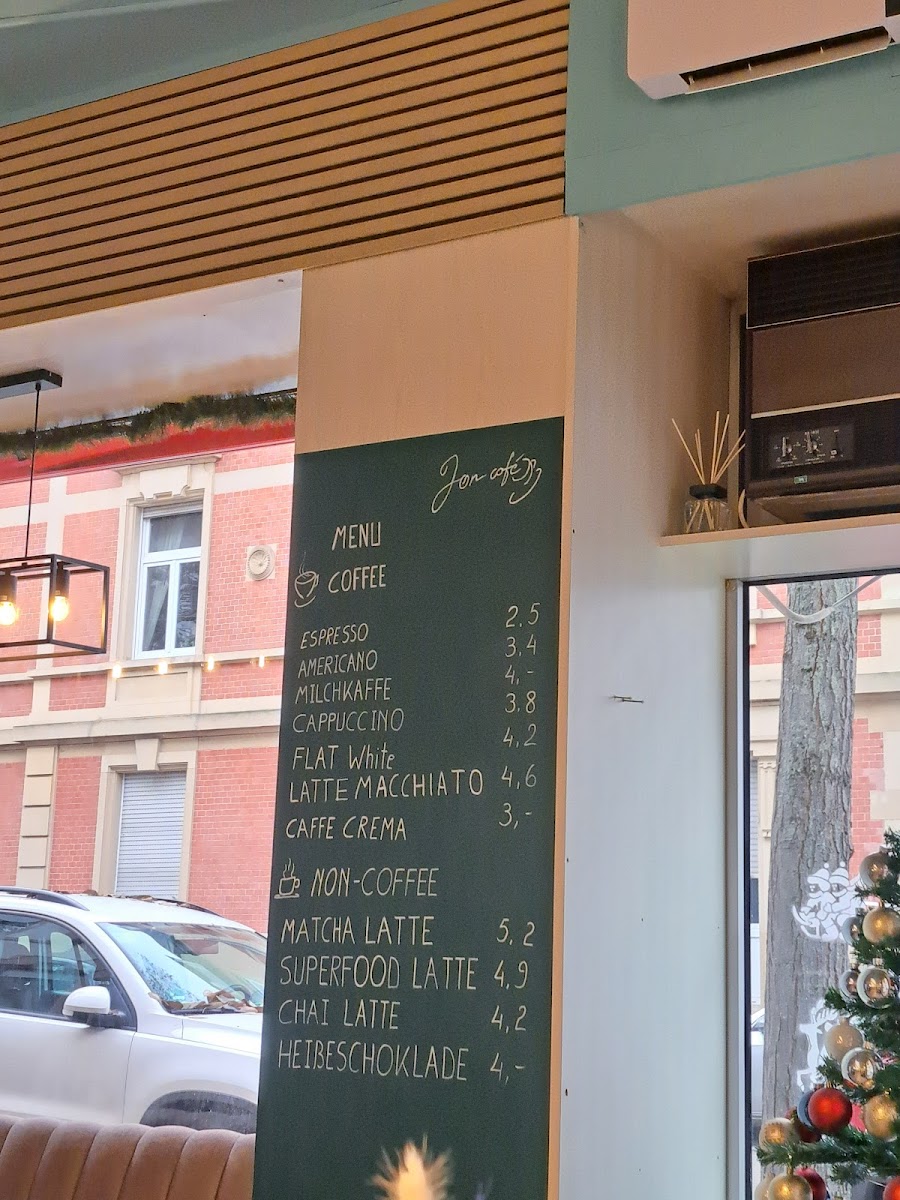 Jon café
MENU
COFFEE
ESPRESSO 2.5
AMERICANO 3,4
MILCHKAFFE 4,-
CAPPUCCINO 3,8
FLAT White 4,2
LATTE MACCHIATO 4,6
CAFFE CREMA 3,-
NON-COFFEE
MATCHA LATTE 5,2
SUPERFOOD LATTE 4,9
CHAI LATTE 4,2
HEIßESCHOKLADE 4,-